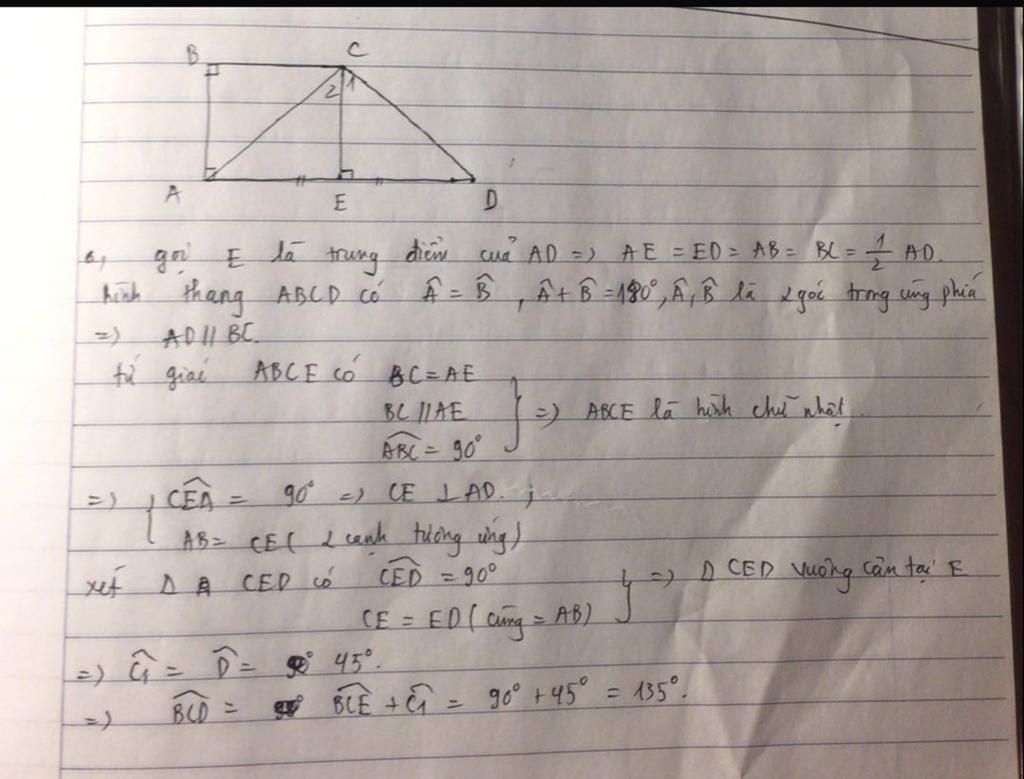 B C
2 1
A E D
a, gọi E là trung điểm của AD => AE = ED = AB = BC = 1/2 AD.
hình thang ABCD có Â = B̂, Â + B̂ = 180°, Â, B̂ là 2 góc trong cùng phía
=> AD // BC.
tứ giác ABCE có BC = AE
BC // AE
ABC = 90° } => ABCE là hình chữ nhật.
=> { CEA = 90° => CE ⊥ AD. ;
AB = CE ( 2 cạnh tương ứng)
xét Δ CED có CED = 90°
CE = ED ( cùng = AB) } => Δ CED vuông cân tại E
=> Ĉ1 = D̂ = 45°.
=> BCD = BCE + Ĉ1 = 90° + 45° = 135°.